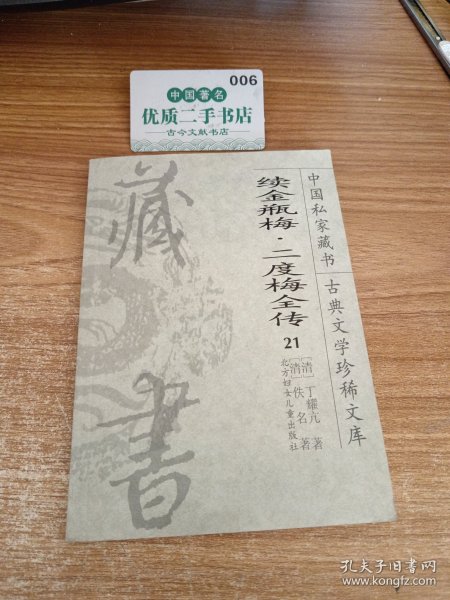 006
中国著名
优质二手书店
古今文献书店
藏書
中国私家藏书
古典文学珍稀文库
续金瓶梅·二度梅全传
21
[清]丁耀亢 著
[清]佚名 著
北方妇女儿童出版社
孔夫子旧书网
www.kongfz.com